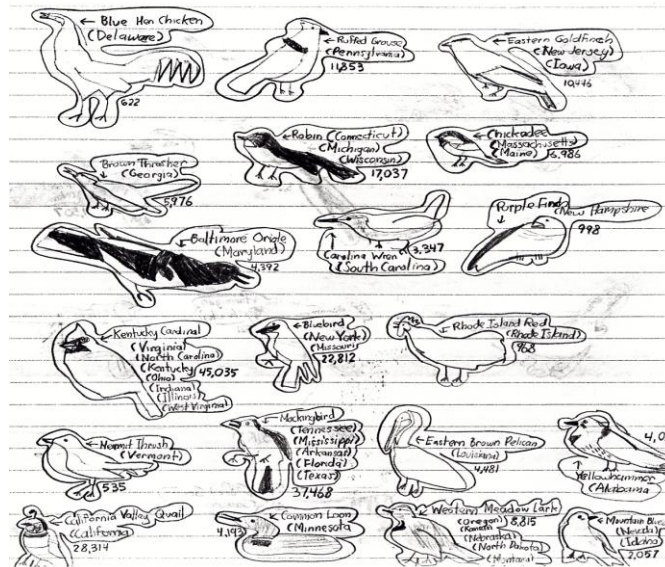 Blue Hen Chicken
(Delaware)
622
Ruffed Grouse
(Pennsylvania)
11,853
Eastern Goldfinch
(New Jersey)
(Iowa)
10,446
Robin (Connecticut)
(Michigan)
(Wisconsin)
17,037
Chickadee
(Massachusetts)
(Maine)
6,986
Brown Thrasher
(Georgia)
5,976
Baltimore Oriole
(Maryland)
4,392
Carolina Wren
(South Carolina)
3,347
Purple Finch
(New Hampshire)
998
Kentucky Cardinal
(Virginia)
(North Carolina)
(Kentucky)
(Ohio)
45,035
(Indiana)
(Illinois)
(West Virginia)
Bluebird
(New York)
(Missouri)
22,812
Rhode Island Red
(Rhode Island)
968
Hermit Thrush
(Vermont)
535
Mockingbird
(Tennessee)
(Mississippi)
(Arkansas)
(Florida)
(Texas)
37,468
Eastern Brown Pelican
(Louisiana)
4,481
4,0
Yellowhammer
(Alabama
California Valley Quail
(California)
28,314
Common Loon
(Minnesota
4,193
Western Meadow Lark
(Oregon) 8,815
(Kansas)
(Nebraska)
(North Dakota)
(Montana)
Mountain Blue
(Nevada)
(Idaho)
2,057